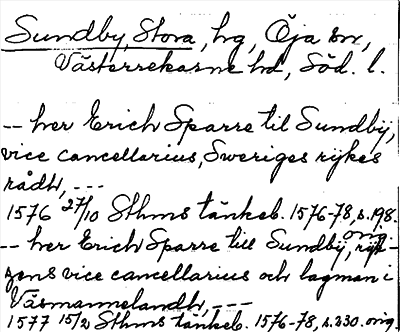 Sundby, Stora, hg, Öja sn,
Västerrekarne hd, Söd. l.
-- her Erich Sparre til Sundbÿ,
vice cancellarius, Sweriges rÿkes
rådh, ---
1576 27/10 Sthms tänkeb. 1576-78, s. 198.
orig
-- her Erich Sparre till Sundbÿ, rÿk-
zens vice cancellarius och lagman i
Väsmannelandh, ---
1577 15/2 Sthms tänkeb. 1576-78, s. 230. orig